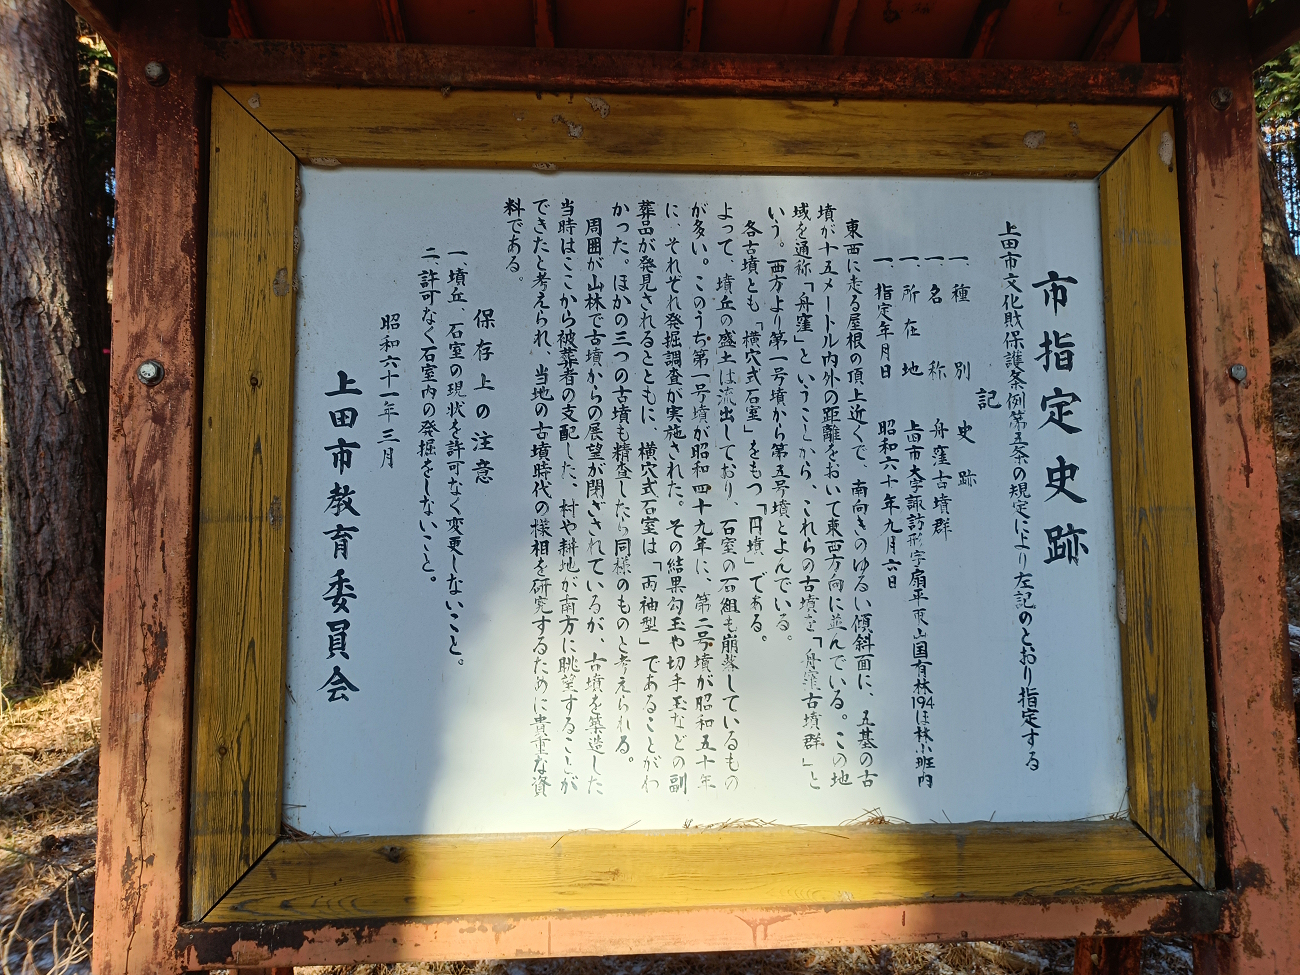 市指定史跡
上田市文化財保護条例第五条の規定により左記のとおり指定する
記
一、種別 史跡
一、名称 舟窪古墳群
一、所在地 上田市大字諏訪形字扇平東山国有林194ほ林小班内
一、指定年月日 昭和六十年九月六日
東西に走る屋根の頂上近くで、南向きのゆるい傾斜面に、五基の古
墳が十五メートル内外の距離をおいて東西方向に並んでいる。この地
域を通称「舟窪」ということから、これらの古墳を「舟窪古墳群」と
いう。西方より第一号墳から第五号墳とよんでいる。
各古墳とも「横穴式石室」をもつ「円墳」である。
よって、墳丘の盛土は流出しており、石室の石組も崩落しているもの
が多い。このうち第一号墳が昭和四十九年に、第二号墳が昭和五十年
に、それぞれ発掘調査が実施された。その結果勾玉や切手玉などの副
葬品が発見されるとともに、横穴式石室は「両袖型」であることがわ
かった。ほかの三つの古墳も精査したら同様のものと考えられる。
周囲が山林で古墳からの展望が閉ざされているが、古墳を築造した
当時はここから被葬者の支配した、村や耕地が南方に眺望することが
できたと考えられ、当地の古墳時代の様相を研究するために貴重な資
料である。
保存上の注意
一、墳丘、石室の現状を許可なく変更しないこと。
二、許可なく石室内の発掘をしないこと。
昭和六十一年三月
上田市教育委員会